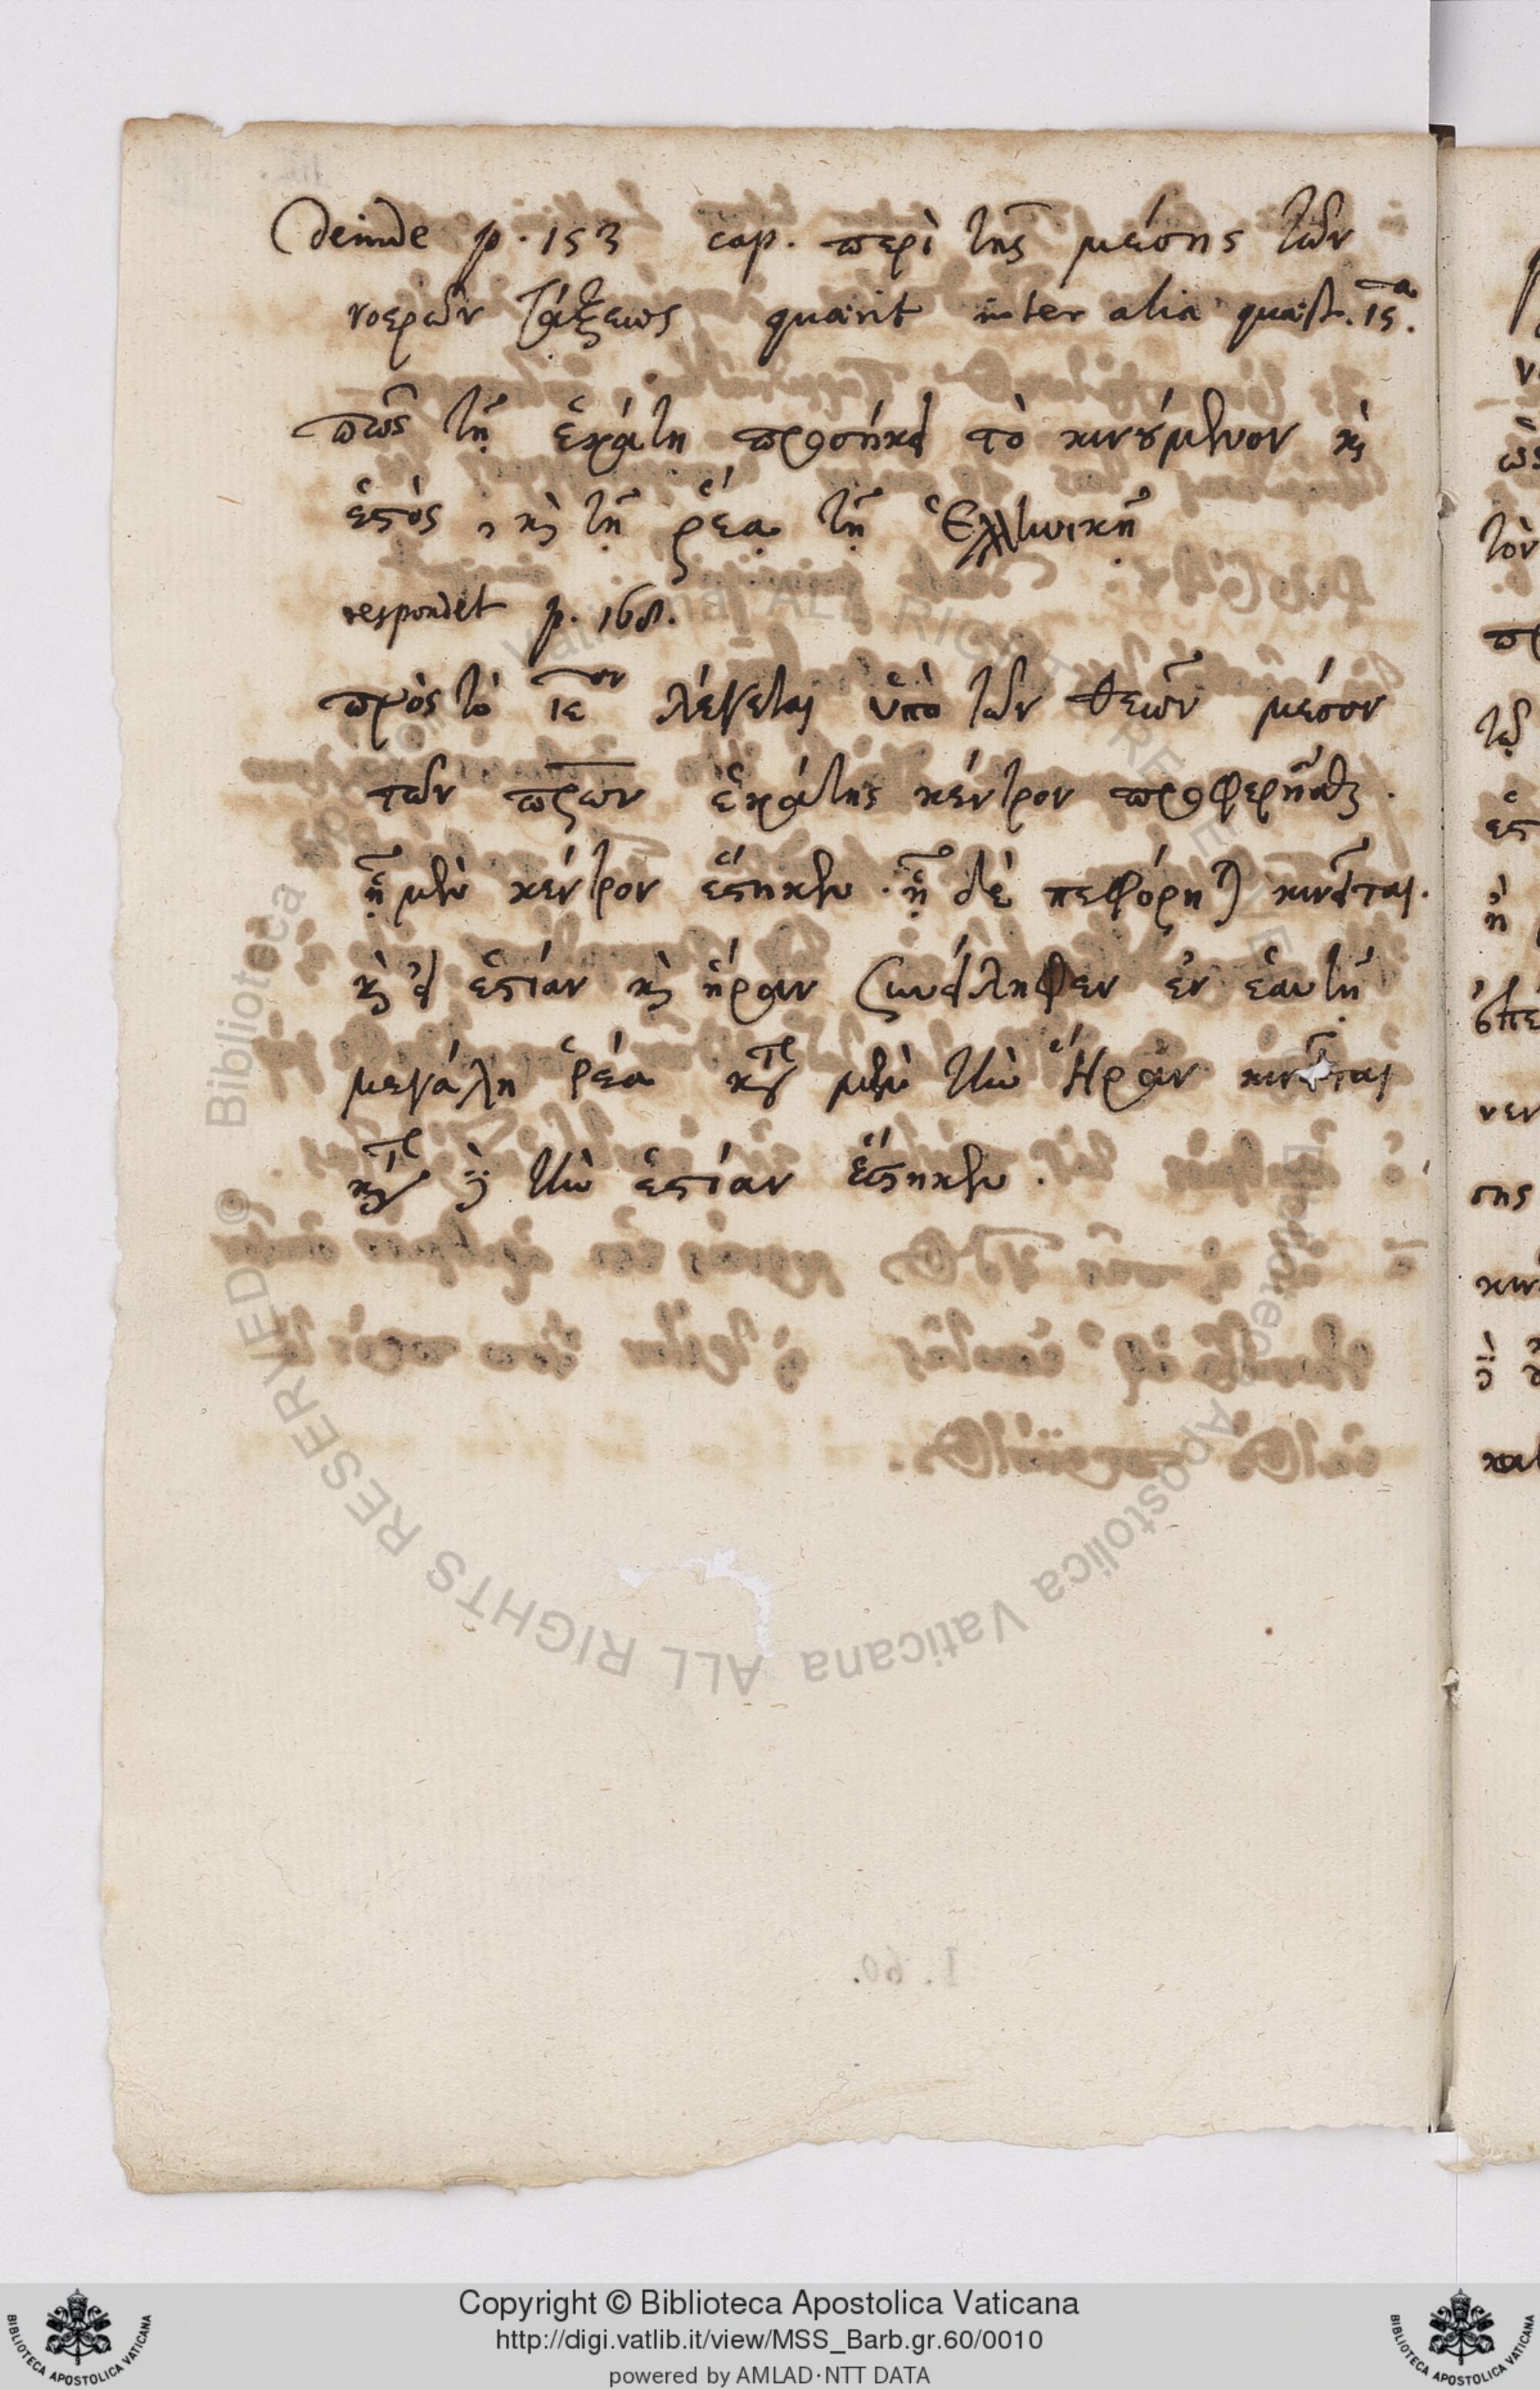 Deinde p. 153 cap. περὶ τῆς μέσης τῶν
νοερῶν τάξεως quærit inter alia quæst. ιςα.
πῶς τῇ ἑκάτῃ προσήκει τὸ κινούμενον κὶ
ἑστὸς, κὶ τῇ ῥέᾳ τῇ Ἑλληνικῇ
respondet p. 168.
πρὸς τὸ ιεον λέγεται ὑπὸ τῶν θεῶν μέσον
τῶν πρων ἑκάτης κέντρον
ᾗ μὲν κέντρον ἕστηκεν. ᾗ δὲ πεφόρηται κινεῖται.
κὶ εἰ ἑστίαν κὶ ἥραν συνείληφεν ἐν ἑαυτῇ
μεγάλη ῥέα κατὰ μὲν τὴν Ἥραν κινεῖται
κατὰ δὲ τὴν ἑστίαν ἕστηκεν.
Copyright © Biblioteca Apostolica Vaticana
http://digi.vatlib.it/view/MSS_Barb.gr.60/0010
powered by AMLAD·NTT DATA
BIBLIOTECA APOSTOLICA VATICANA
BIBLIOTECA APOSTOLICA VATICANA